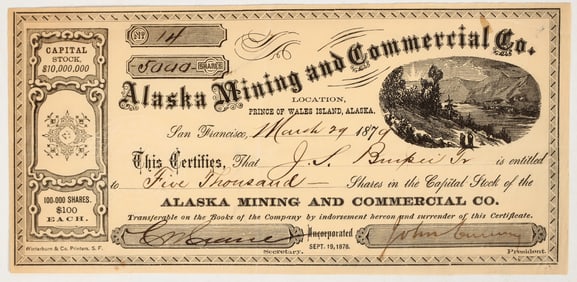 Alaska Mining and Commercial Co.
CAPITAL
STOCK,
$10,000,000
No 14
5000 SHARES
LOCATION,
PRINCE OF WALES ISLAND, ALASKA.
San Francisco, March 29 1879
This Certifies, That J. S. Jr is entitled
to Five Thousand Shares in the Capital Stock of the
ALASKA MINING AND COMMERCIAL CO.
Transferable on the Books of the Company by indorsement hereon and surrender of this Certificate.
100-000 SHARES.
$100
EACH.
Incorporated
SEPT. 19, 1878.
John
Secretary.
President.
Winterburn & Co. Printers, S. F.